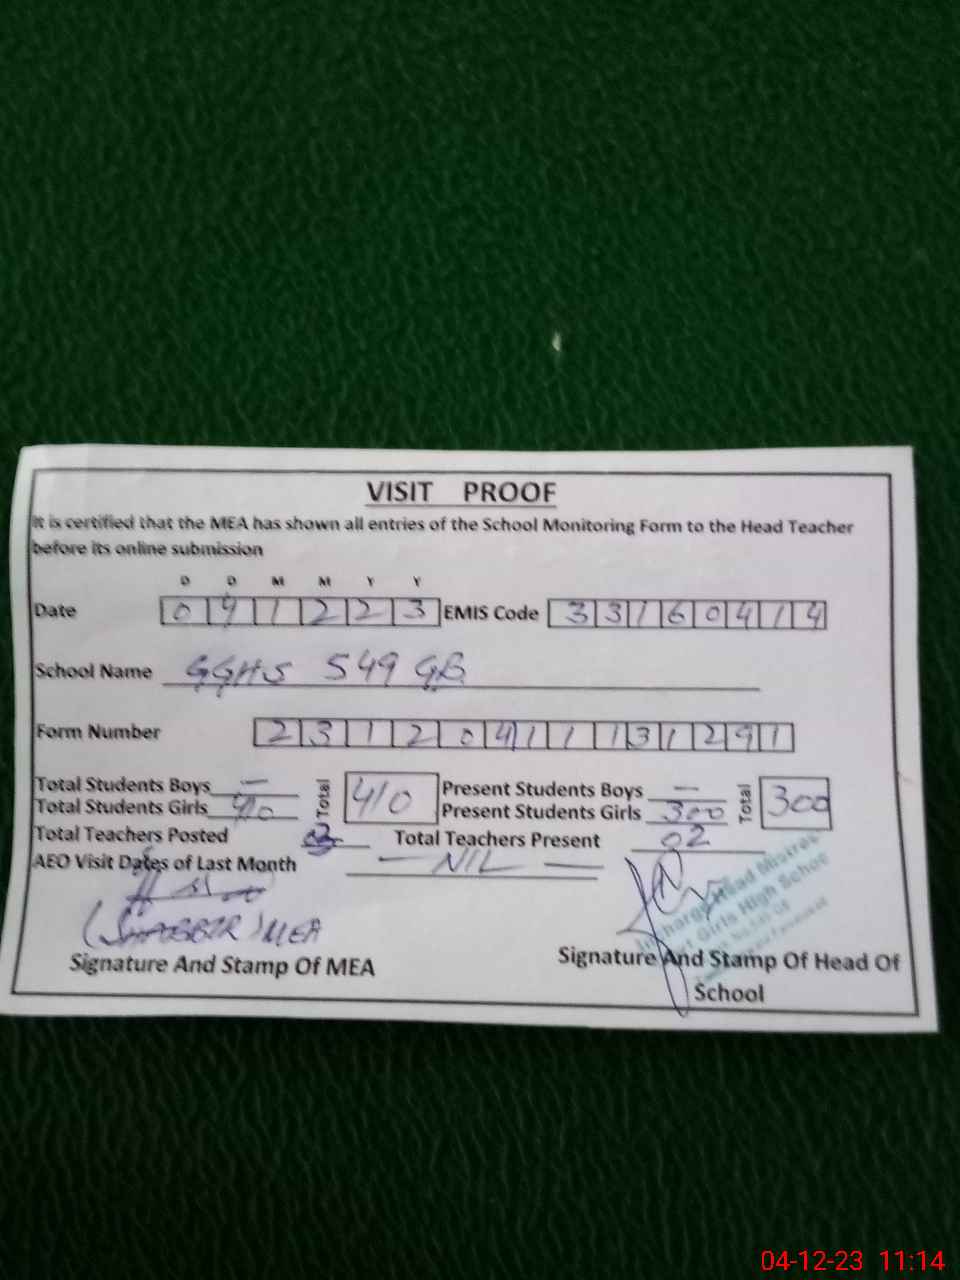 VISIT PROOF
It is certified that the MEA has shown all entries of the School Monitoring Form to the Head Teacher
before its online submission
D D M M Y Y
Date 0 4 1 2 2 3 EMIS Code 3 3 1 6 0 4 1 4
School Name GGHS 549 GB
Form Number 2 3 1 2 0 4 1 1 1 3 1 2 9 1
Total Students Boys — Total 410 Present Students Boys — Total 300
Total Students Girls 410 Present Students Girls 300
Total Teachers Posted Total Teachers Present 02
AEO Visit Dates of Last Month — NIL —
(SHABBIR) MEA
Incharge Head Mistres
Girls High School
Signature And Stamp Of MEA Signature And Stamp Of Head Of
School
04-12-23 11:14